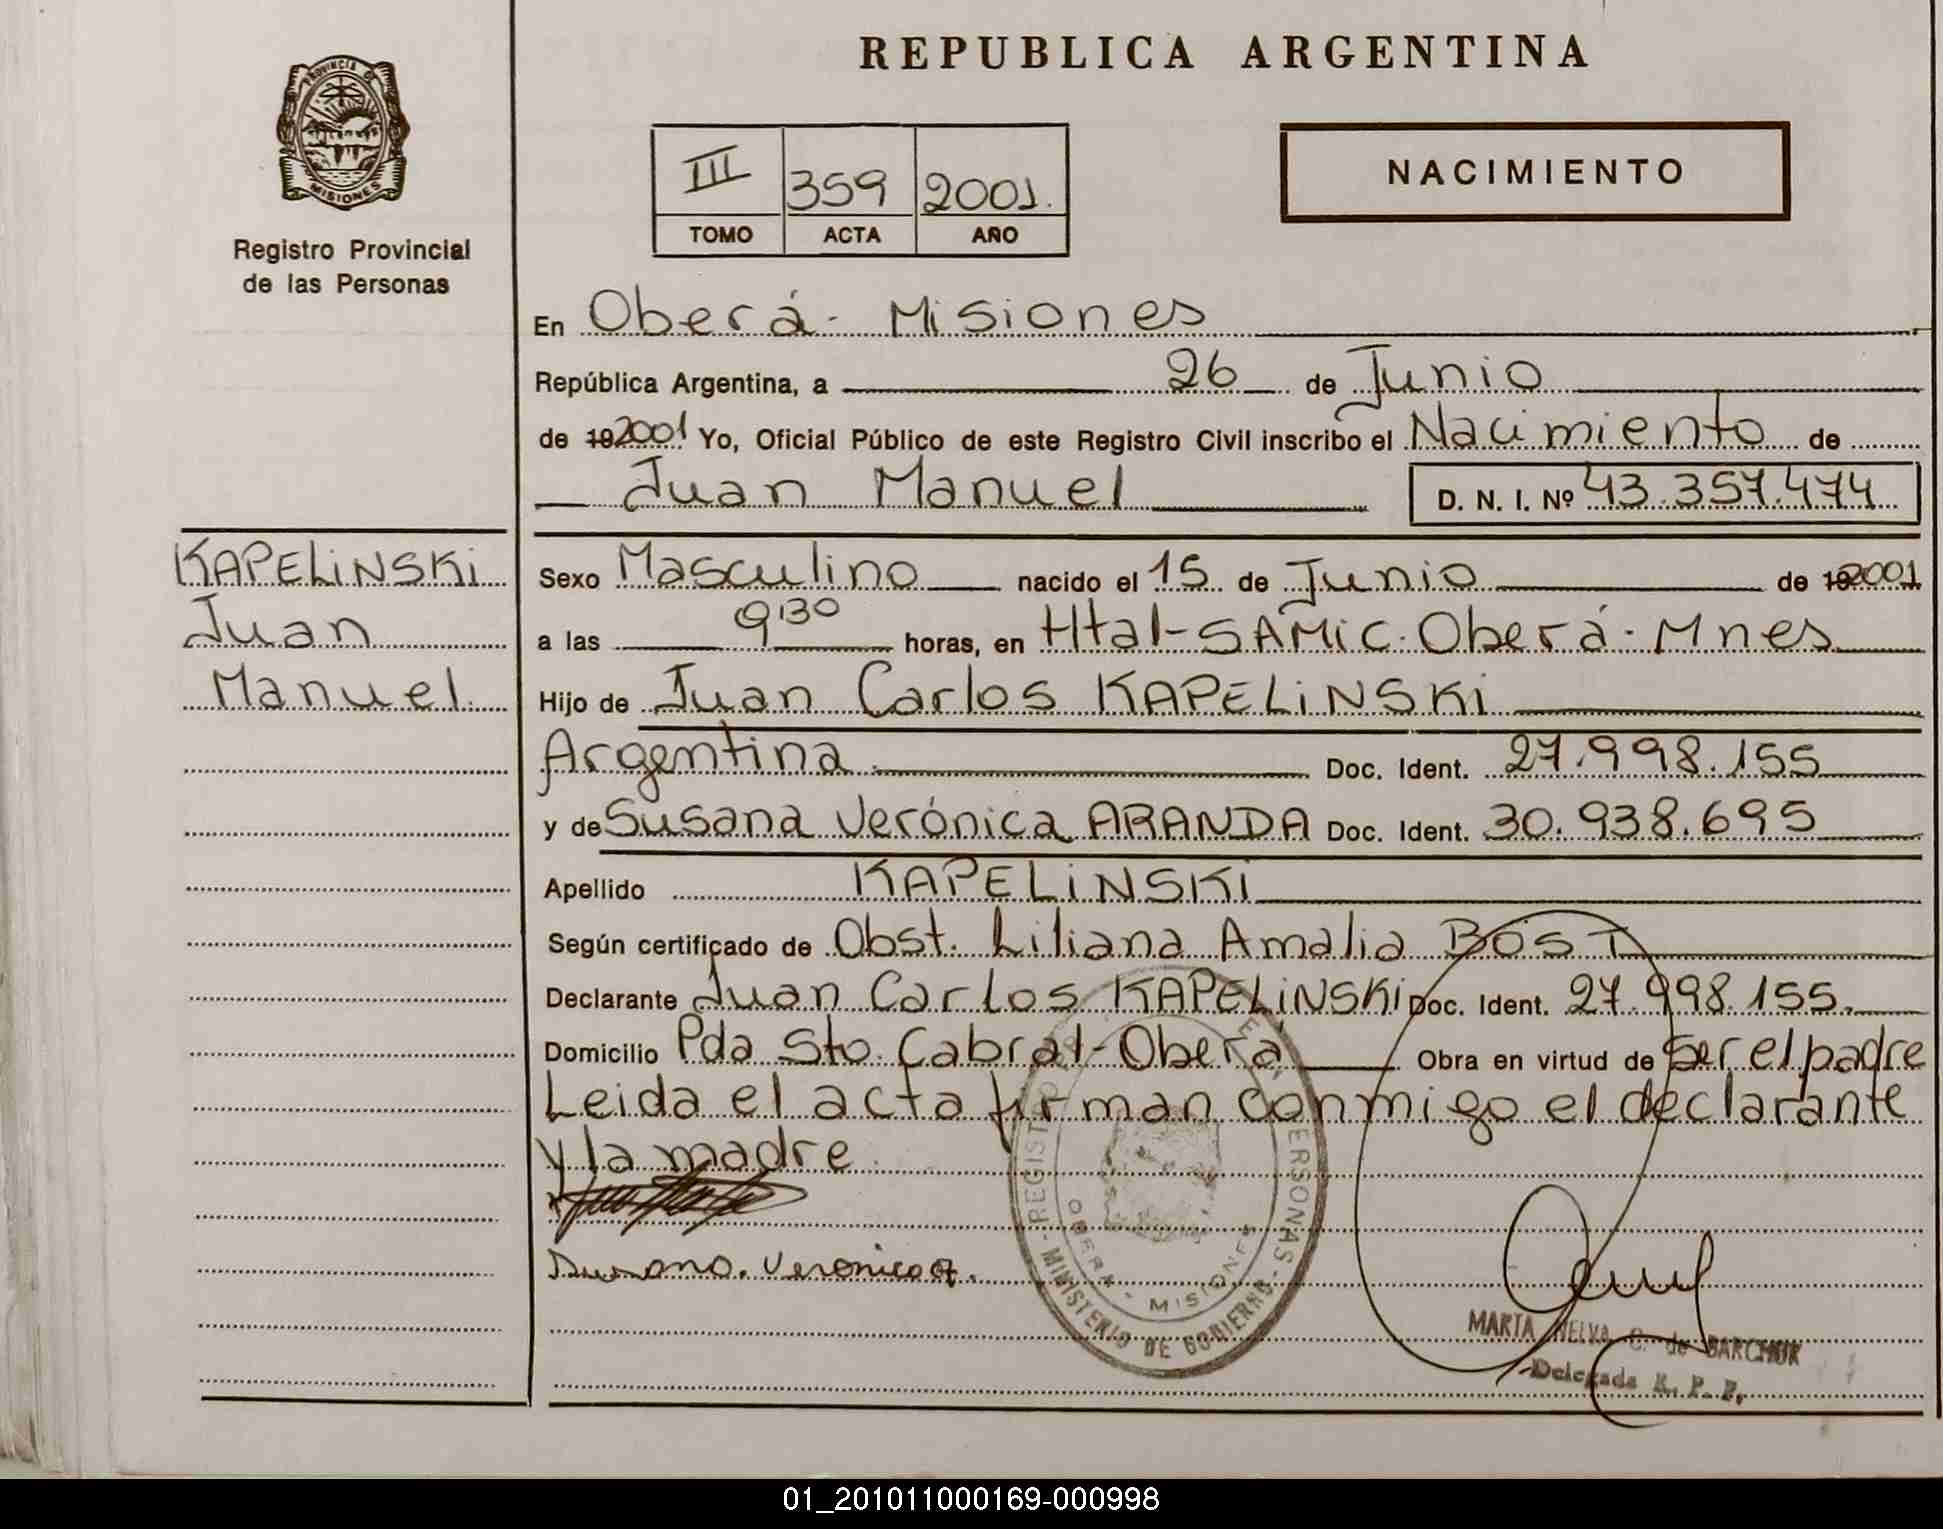 REPUBLICA ARGENTINA
PROVINCIA DE
MISIONES
Registro Provincial
de las Personas
III 359 2001.
TOMO ACTA AÑO
NACIMIENTO
En Oberá - Misiones
República Argentina, a 26 de Junio
de 19 2001 Yo, Oficial Público de este Registro Civil inscribo el Nacimiento de
Juan Manuel D. N. I. Nº 43.357.474
KAPELINSKI
Juan
Manuel
Sexo Masculino nacido el 15 de Junio de 19 2001
a las 9:30 horas, en Htal-SAMIC. Oberá - Mnes
Hijo de Juan Carlos KAPELINSKI
Argentina Doc. Ident. 27.998.155
y de Susana Verónica ARANDA Doc. Ident. 30.938.695
Apellido KAPELINSKI
Según certificado de Obst. Liliana Amalia BOST
Declarante Juan Carlos KAPELINSKI Doc. Ident. 27.998.155.
Domicilio Pda Sto. Cabral - Oberá Obra en virtud de Ser el padre
Leida el acta firman conmigo el declarante
y la madre
Susana. Veronica A.
REGISTRO PERSONAS - MINISTERIO DE GOBIERNO -
OBERA - MISIONES
MARIA NELVA C. de
Delegada R. P. P.
01_201011000169-000998